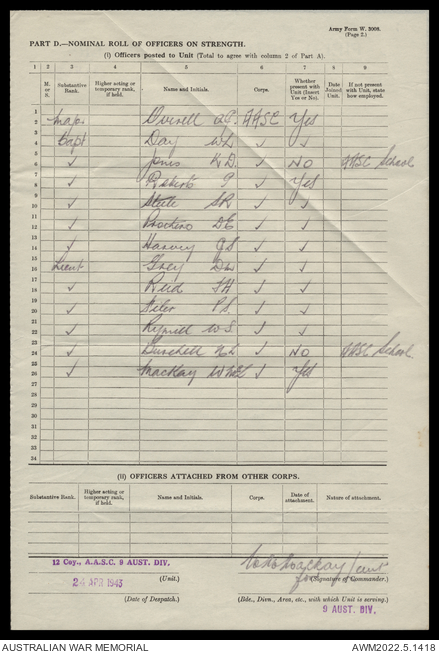 Army Form W. 3008.
(Page 2.)
PART D.—NOMINAL ROLL OF OFFICERS ON STRENGTH.
(i) Officers posted to Unit (Total to agree with column 2 of Part A).
1 2 3 4 5 6 7 8 9
M. or S. Substantive Rank. Higher acting or temporary rank, if held. Name and Initials. Corps. Whether present with Unit (Insert Yes or No). Date Joined Unit. If not present with Unit, state how employed.
1
2 Major Overell AASC Yes
3
4 Capt Day WL ✓ ✓
5
6 ✓ K D. ✓ NO AASC School
7
8 ✓ Roberts P ✓ Yes
9
10 ✓ Steele SR ✓ ✓
11
12 ✓ DE ✓ ✓
13
14 ✓ Harvey GS ✓ ✓
15
16 Lieut Grey DL ✓ ✓
17
18 ✓ Reid FH ✓ ✓
19
20 ✓ PS. ✓ ✓
21
22 ✓ Rymill WS. ✓ ✓
23
24 ✓ Burchell ✓ NO AASC School
25
26 ✓ Mackay ✓ Yes
27
28
29
30
31
32
33
34
(ii) OFFICERS ATTACHED FROM OTHER CORPS.
Substantive Rank. Higher acting or temporary rank, if held. Name and Initials. Corps. Date of attachment. Nature of attachment.
12 Coy., A.A.S.C. 9 AUST. DIV. Mackay Lieut
24 APR 1943 (Unit.) for (Signature of Commander.)
(Date of Despatch.) (Bde., Divn., Area, etc., with which Unit is serving.)
9 AUST. DIV.
AUSTRALIAN WAR MEMORIAL AWM2022.5.1418